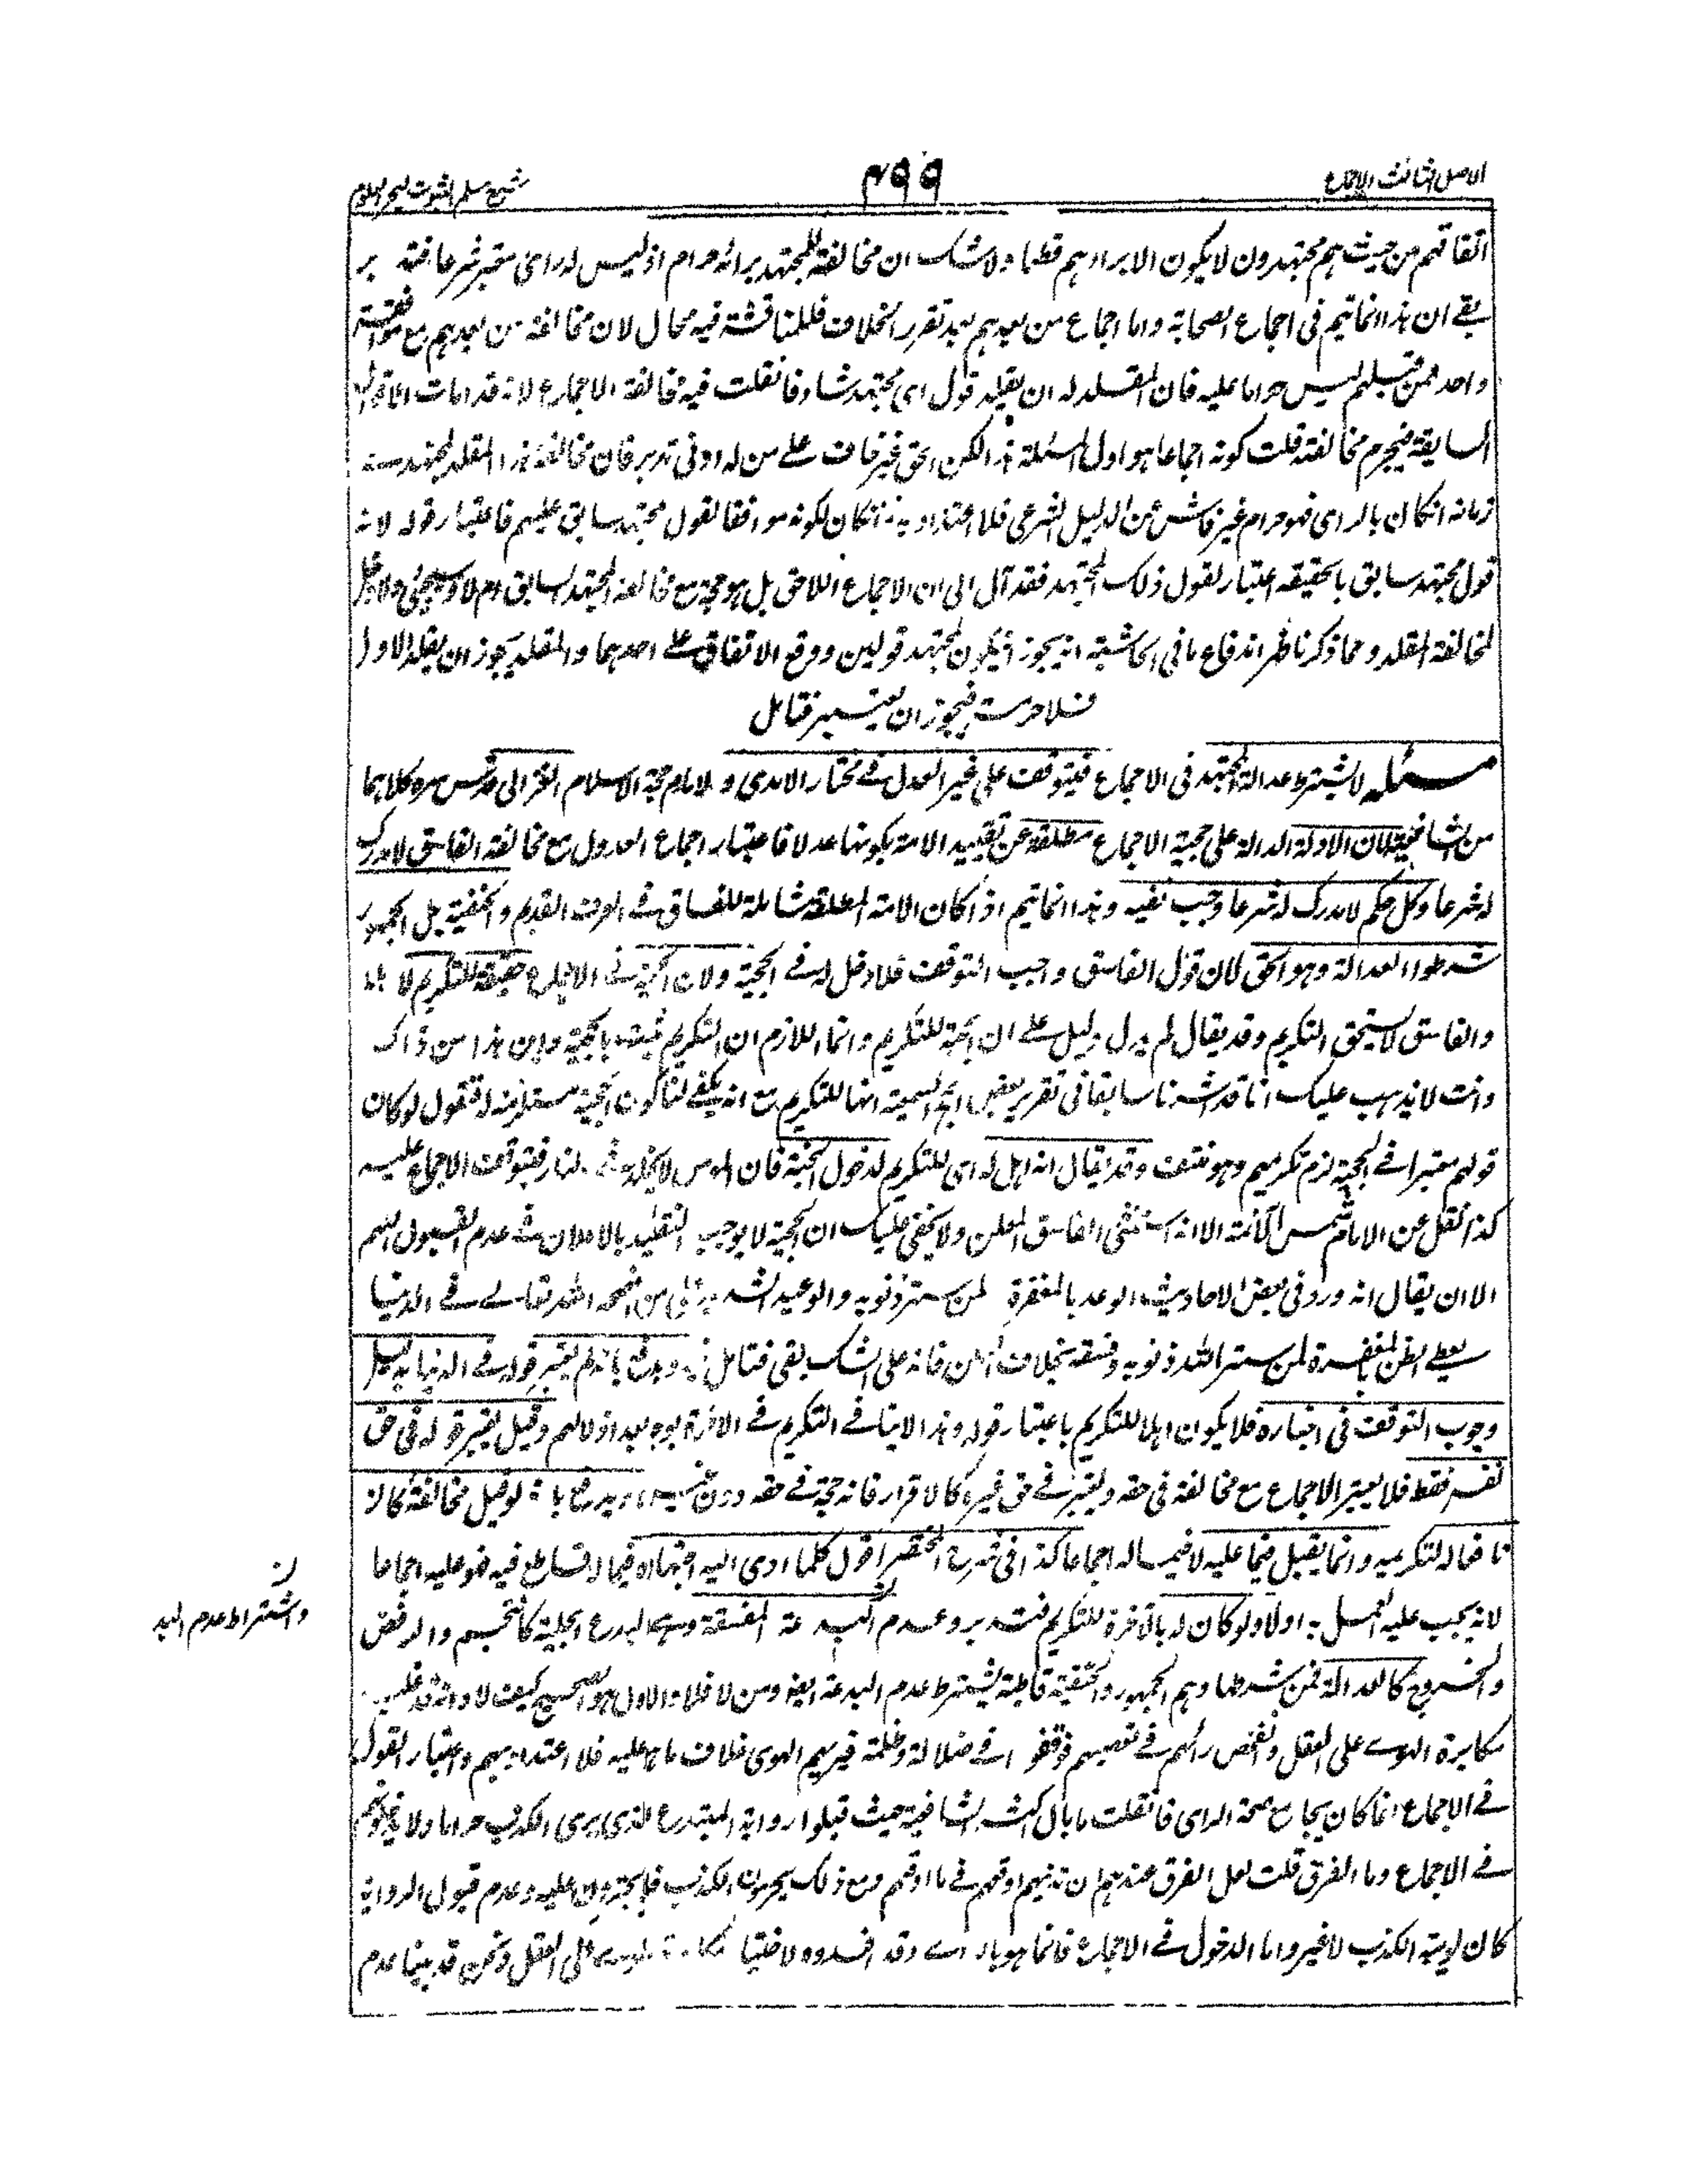 الاصل الثالث الاجماع
۴۹۹
شرح مسلم الثبوت لبحر العلوم
اتفاقهم من حيث هم مجتهدون لا يكون الا برادهم قطعا ولا شك ان مخالفة للمجتهد برائه حرام اذ ليس له رائ معتبر شرعا فتدبر
بقي ان هذا انما يتم في اجماع الصحابة واما اجماع من بعدهم بعد تقرر الخلاف فللمناقشة فيه مجال لان مخالفة من بعدهم مع موافقة
واحد ممن قبلهم ليس حراما عليه فان المقلد له ان يقلد قول اى مجتهد شاء فان قلت فيه مخالفة الاجماع لانه قد امات
السابقة فيحرم مخالفته قلت كونه اجماعا هو اول المسئلة هذا لكن الحق غير خاف على من له ادنى تدبر فان مخالفة هذا المقلد لمجتهدے
زمانه انكان بالراى فهو حرام غير ناش عن الدليل الشرعى فلا اعتداد به وانكان لكونه موافقا لقول مجتهد سابق عليهم فاعتبار قوله لانه
قول مجتهد سابق بالحقيقة اعتبار لقول ذلك المجتهد فقد آل الى ان الاجماع اللاحق بل هو حجة مع مخالفة المجتهد السابق ام لا وسيجئ ولا دخل
لمخالفة المقلد ومما ذكرنا ظهر اندفاع ما فى الحاشية انه يجوز ان يكون لمجتهد قولين ووقع الاتفاق على احدهما والمقلد يجوز ان يقلد الاول
فلا حرمة فيجوز ان يعتبر فتامل
مسئله لا يشترط عدالة المجتهد فى الاجماع فيتوقف على غير العدل فے مختار الآمدى والامام حجة الاسلام الغزالى قدس سره كلاهما
من الشافعية لان الادلة الدالة على حجية الاجماع مطلقة عن تقييد الامة بكونها عدلا فاعتبار اجماع العدول مع مخالفة الفاسق لا مدرك
له شرعا وكل حكم لا مدرك له شرعا وجب نفيه وهذا انما يتم اذا كان الامة المطلقة شاملة للفساق فے العرف القديم والحنفية بل الجمهور
شرطوا العدالة وهو الحق لان قول الفاسق واجب التوقف فلا دخل له فے الحجية ولان الحجية فے الاجماع حقيقة للتكريم
والفاسق لا يستحق التكريم وقد يقال لم يدل دليل على ان الحجية للتكريم وانما اللازم ان التكريم يثبت بالحجية واين هذا من ذاك
وانت لا يذهب عليك انا قد اشرنا سابقا فى تقرير بعض الحجج السمعية انها للتكريم مع انه يكفى لنا كون الحجية مستلزمة له فنقول لو كان
قولهم معتبرا فے الحجية لزم تكريمهم وهو منتف وقد يقال انه اهل له اى للتكريم لدخول الجنة فان المومن لا يخلد فى النار فيتوقف الاجماع عليه
كذا نقل عن الامام شمس الائمة الا انه استثنى الفاسق المعلن ولا يخفى عليك ان الحجية لا يوجب التقييد بالاعلان فے عدم القبول اللهم
الا ان يقال انه ورد فى بعض الاحاديث الوعد بالمغفرة لمن ستر ذنوبه والوعيد الشديد على من افضحه الله تعالے فے الدنيا
يعطى الظن المغفرة لمن ستر الله ذنوبه وفسقه بخلاف المعلن فانه على الشك بقى فتامل فيه ويدفع بانه لم يعتبر قوله فے الدنيا بدليل
وجوب التوقف فى اخباره فلا يكون اهلا للتكريم باعتبار قوله وهذا لا ينافے التكريم فے الآخرة بوجه بعد اذلالهم وقيل يعتبر قوله فى حق
نفسه فقط فلا يعتبر الاجماع مع مخالفته فى حقه ويعتبر فے حق غيره كالاقرار فانه حجة فے حقه دون غيره ويدفع بانه لو قيل مخالفته كان
نافعا له لتكريمه وانما يقبل فيما عليه لا فيما له اجماعا كذا فى شرح المختصر اقول كلما ادى اليه اجتهاده فيما لا قاطع فيه فهو عليه اجماعا
لانه يجب عليه العمل به اولا ولو كان له بالآخرة للتكريم فتدبر وعدم البدعة المفسقة وهى البدع الجلية كالتجسم والرفض
والخروج كالعدالة فمن شرطها وهم الجمهور والحنفية قاطبة يشترط عدم البدعة ايضا ومن لا فلا والاول هو الصحيح كيف لا وانه قد غلب
مكابرة الهوے على العقل وانغمص رائهم فے تعصبهم فوقفوا فے ضلالة وظلمة فيريهم الهوى خلاف ما هو عليه فلا اعتداد بهم واعتبار القول
فے الاجماع انما كان بجامع صحة الراى فان قلت ما بال اكثر الشافعية حيث قبلوا رواية المبتدع الذى يرى الكذب حراما ولا يقبلونهم
فے الاجماع وما الفرق قلت لعل الفرق عندهم ان تدينهم اوقعهم فے ما اوقعهم ومع ذلك يحرمون الكذب فلا يجترؤن عليه وعدم قبول الرواية
كان لريبة الكذب لا غير واما الدخول فے الاجماع فانما هو بالراے وقد افسدوه لاختيار مكابرة الهوے على العقل ونحن قد بينا عدم
واشتراط عدم البد